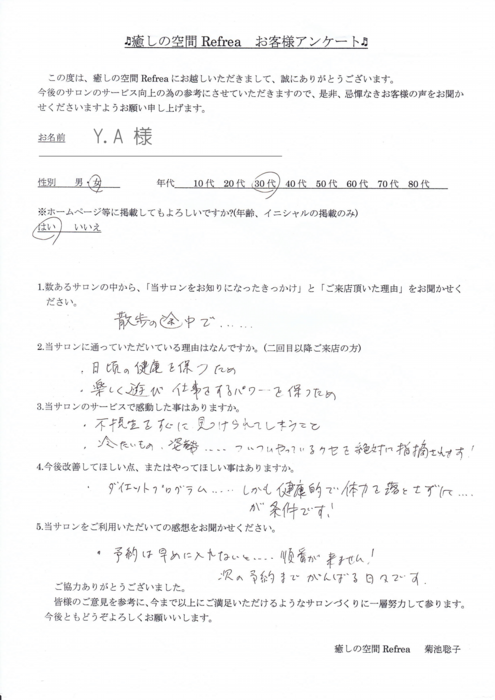 ♫癒しの空間 Refrea　お客様アンケート♫
この度は、癒しの空間 Refrea にお越しいただきまして、誠にありがとうございます。
今後のサロンのサービス向上の為の参考にさせていただきますので、是非、忌憚なきお客様の声をお聞か
せくださいますようお願い申し上げます。
お名前　Y.A 様
性別　男・女　年代　10代　20代　30代　40代　50代　60代　70代　80代
※ホームページ等に掲載してもよろしいですか?(年齢、イニシャルの掲載のみ)
はい　いいえ
1.数あるサロンの中から、「当サロンをお知りになったきっかけ」と「ご来店頂いた理由」をお聞かせく
ださい。
散歩の途中で……
2.当サロンに通っていただいている理由はなんですか。(二回目以降ご来店の方)
・日頃の健康を保つため
・楽しく遊び 仕事をするパワーを保つため
3.当サロンのサービスで感動した事はありますか。
・不摂生をすぐに見つけられてしまうこと
・冷たいもの、姿勢…. ついついやっているクセを絶対に指摘されます!
4.今後改善してほしい点、またはやってほしい事はありますか。
・ダイエットプログラム….. しかも健康的で体力を落とさずに….
が条件です!
5.当サロンをご利用いただいての感想をお聞かせください。
・予約は早めに入れないと….. 順番が来ません!
次の予約までがんばる日々です.
ご協力ありがとうございました。
皆様のご意見を参考に、今まで以上にご満足いただけるようなサロンづくりに一層努力して参ります。
今後ともどうぞよろしくお願いいします。
癒しの空間 Refrea　菊池聡子